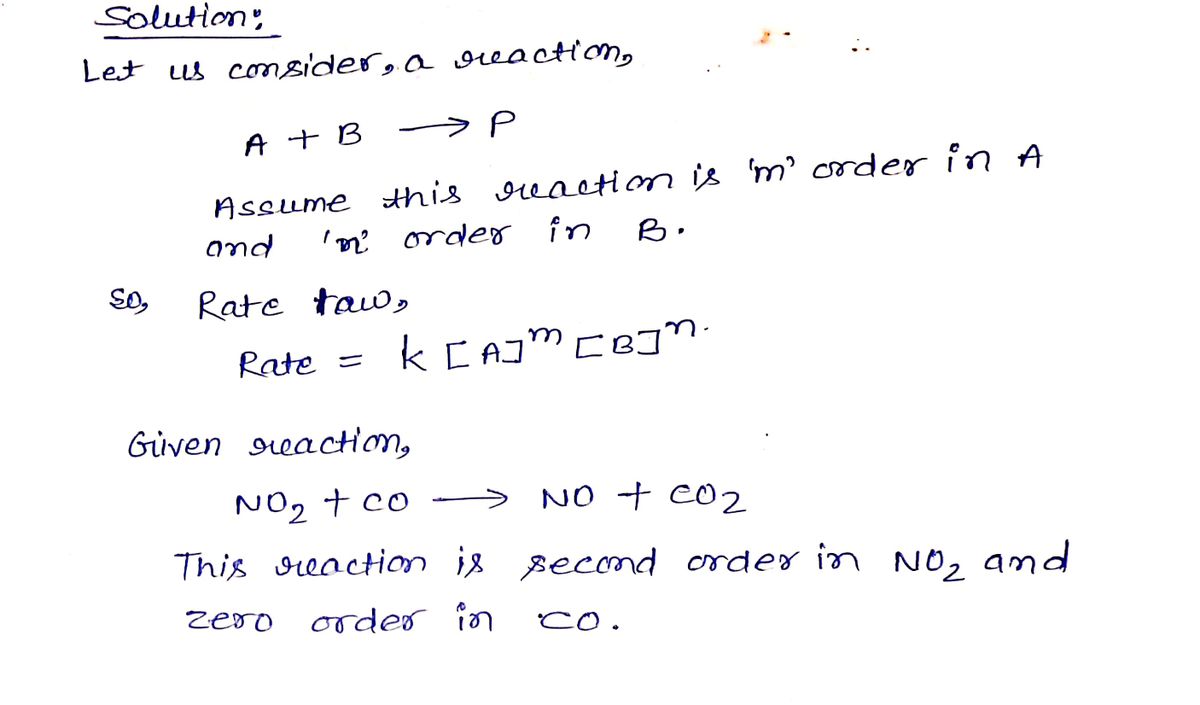 Solution:
Let us consider, a reaction,
A + B → P
Assume this reaction is 'm' order in A
and 'n' order in B.
So, Rate law,
Rate = k [A]ᵐ [B]ⁿ.
Given reaction,
NO₂ + CO → NO + CO₂
This reaction is second order in NO₂ and
zero order in CO.